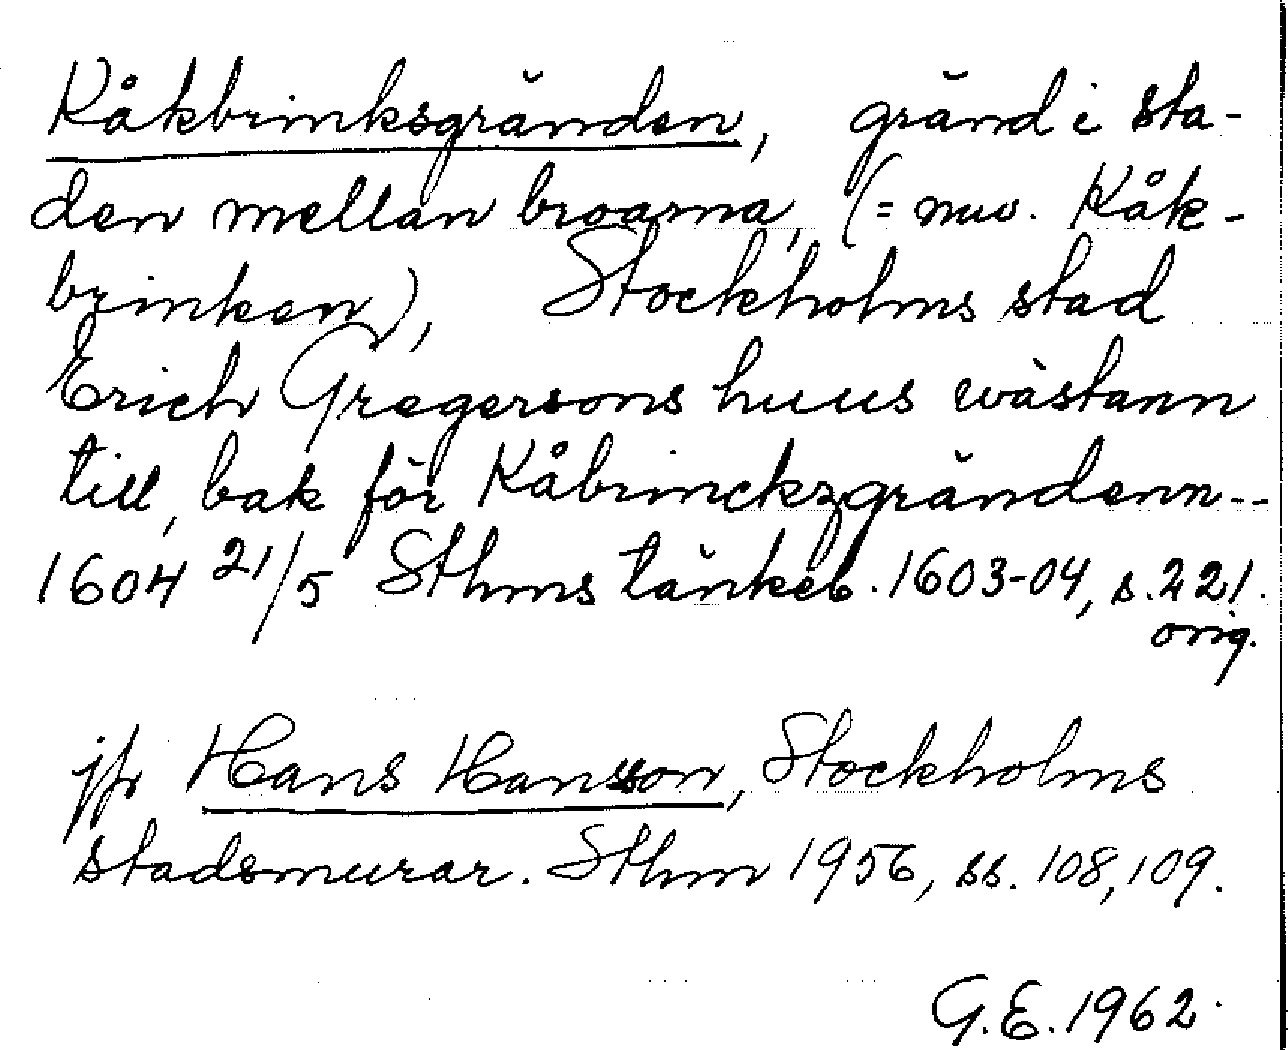 Kåkbrinksgränden, gränd i sta-
den mellan broarna, (= nuv. Kåk-
brinken), Stockholms stad
Erich Gregersons huus wästann
till, bak för Kåbrinckzgrändenn--
1604 21/5 Sthms tänkeb. 1603-04, s. 221.
orig.
jfr Hans Hansson, Stockholms
stadsmurar. Sthm 1956, ss. 108, 109.
G.E. 1962.